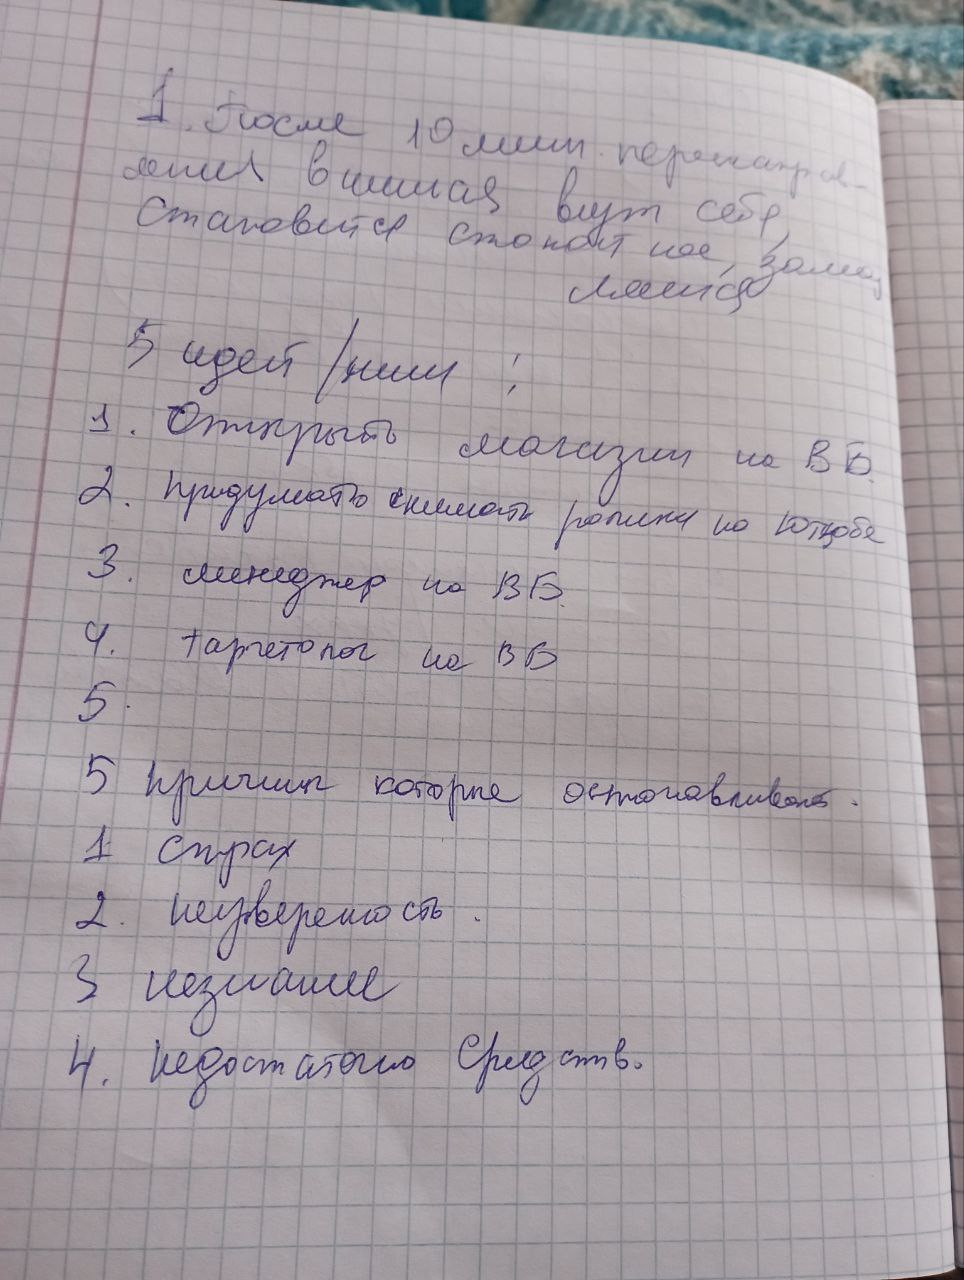 1. После 10 мин. перенаправ-
ления внимая внут себя,
становится спокойнее,
5 идей / ниш :
1. Открыть магазин на ВБ.
2. придумать снимать ролики на Ютюбе
3. менеджер на ВБ.
4. таргетолог на ВБ
5.
5 причин которые останавливают.
1 страх
2. неувереность.
3 незнание
4. недостаточно Средств.